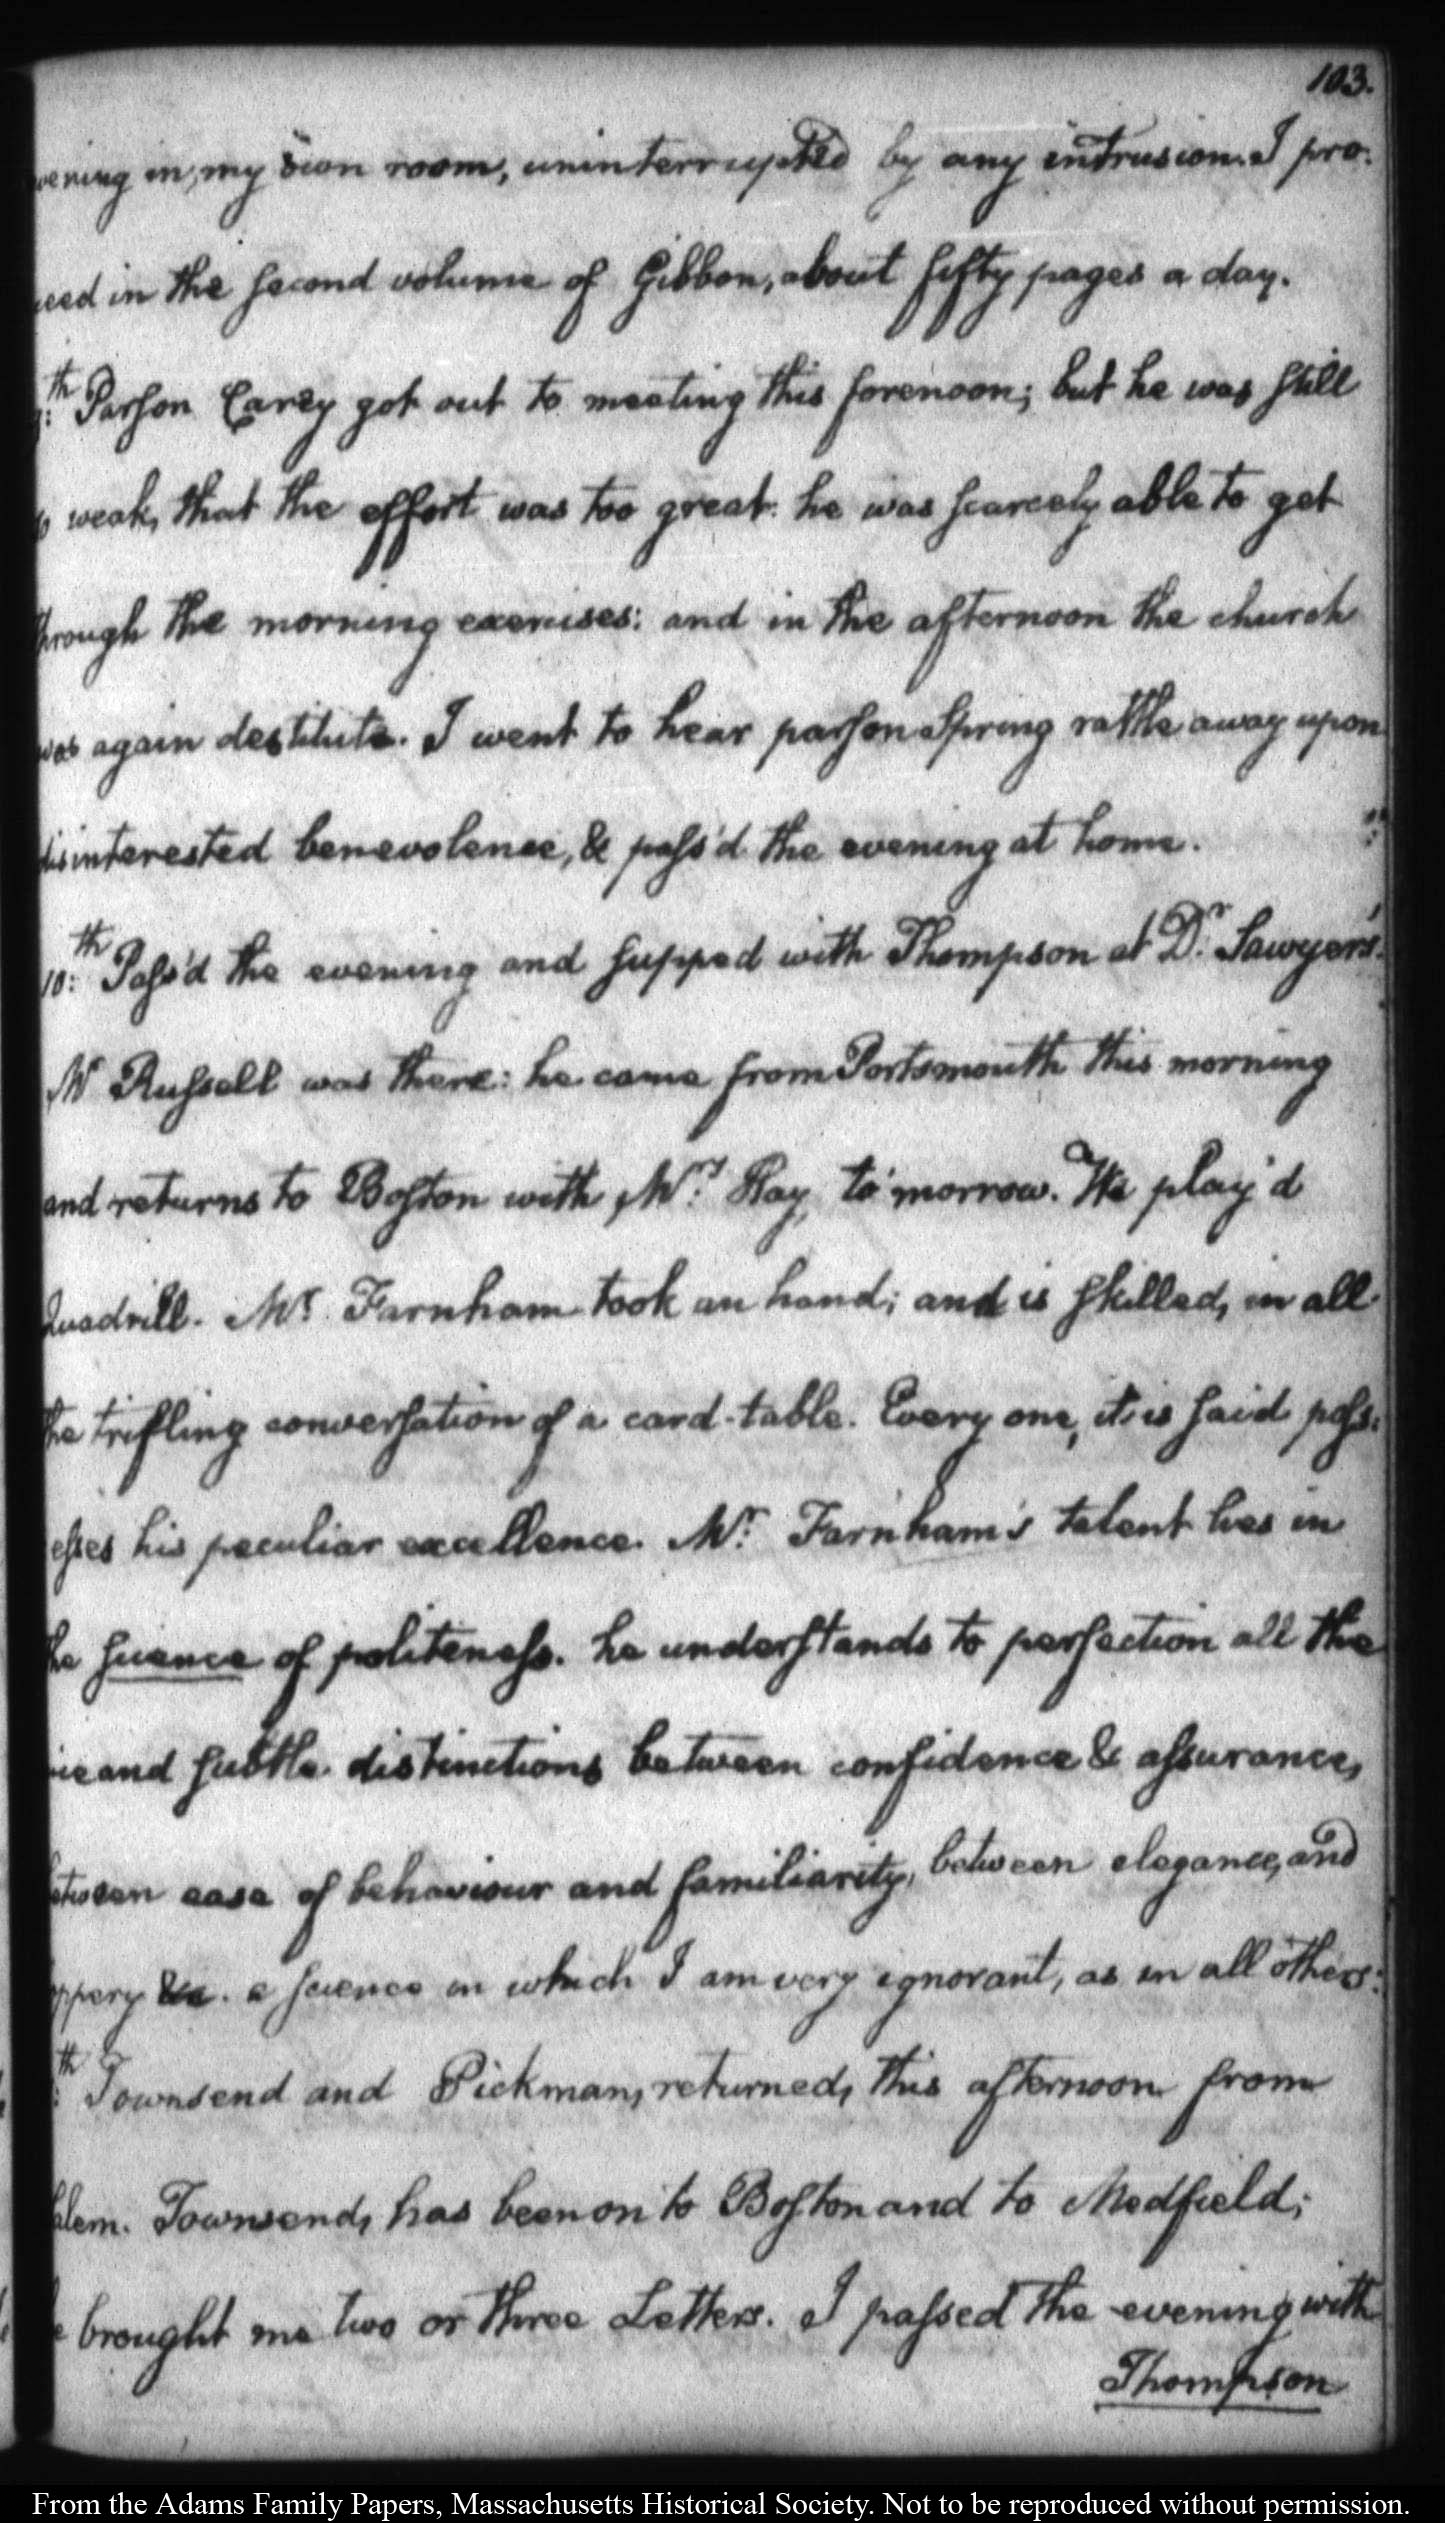 103.
vening in, my own room, uninterrupted by any intrusion. I pro:
ceed in the second volume of Gibbon, about fifty pages a day.
9:th Parson Carey got out to meeting this forenoon; but he was still
so weak, that the effort was too great: he was scarcely able to get
through the morning exercises: and in the afternoon the church
was again destitute. I went to hear parson Spring rattle away upon
disinterested benevolence, & pass'd the evening at home.
10:th Pass'd the evening and supped with Thompson at Dr. Sawyer's.
Mr Russell was there: he came from Portsmouth this morning
and returns to Boston with Mrs. Ray, to morrow. We play'd
Quadrill. Mr. Farnham took an hand; and is skilled, in all
the trifling conversation of a card-table. Every one, it is said poss:
esses his peculiar excellence. Mr. Farnham's talent lies in
the science of politeness. he understands to perfection all the
nice and subtle distinctions between confidence & assurance,
between ease of behaviour and familiarity, between elegance, and
foppery &c. a science in which I am very ignorant, as in all others:
th Townsend and Pickman, returned, this afternoon from
Salem. Townsend, has been on to Boston and to Medfield;
he brought me two or three Letters. I passed the evening with
Thompson
From the Adams Family Papers, Massachusetts Historical Society. Not to be reproduced without permission.